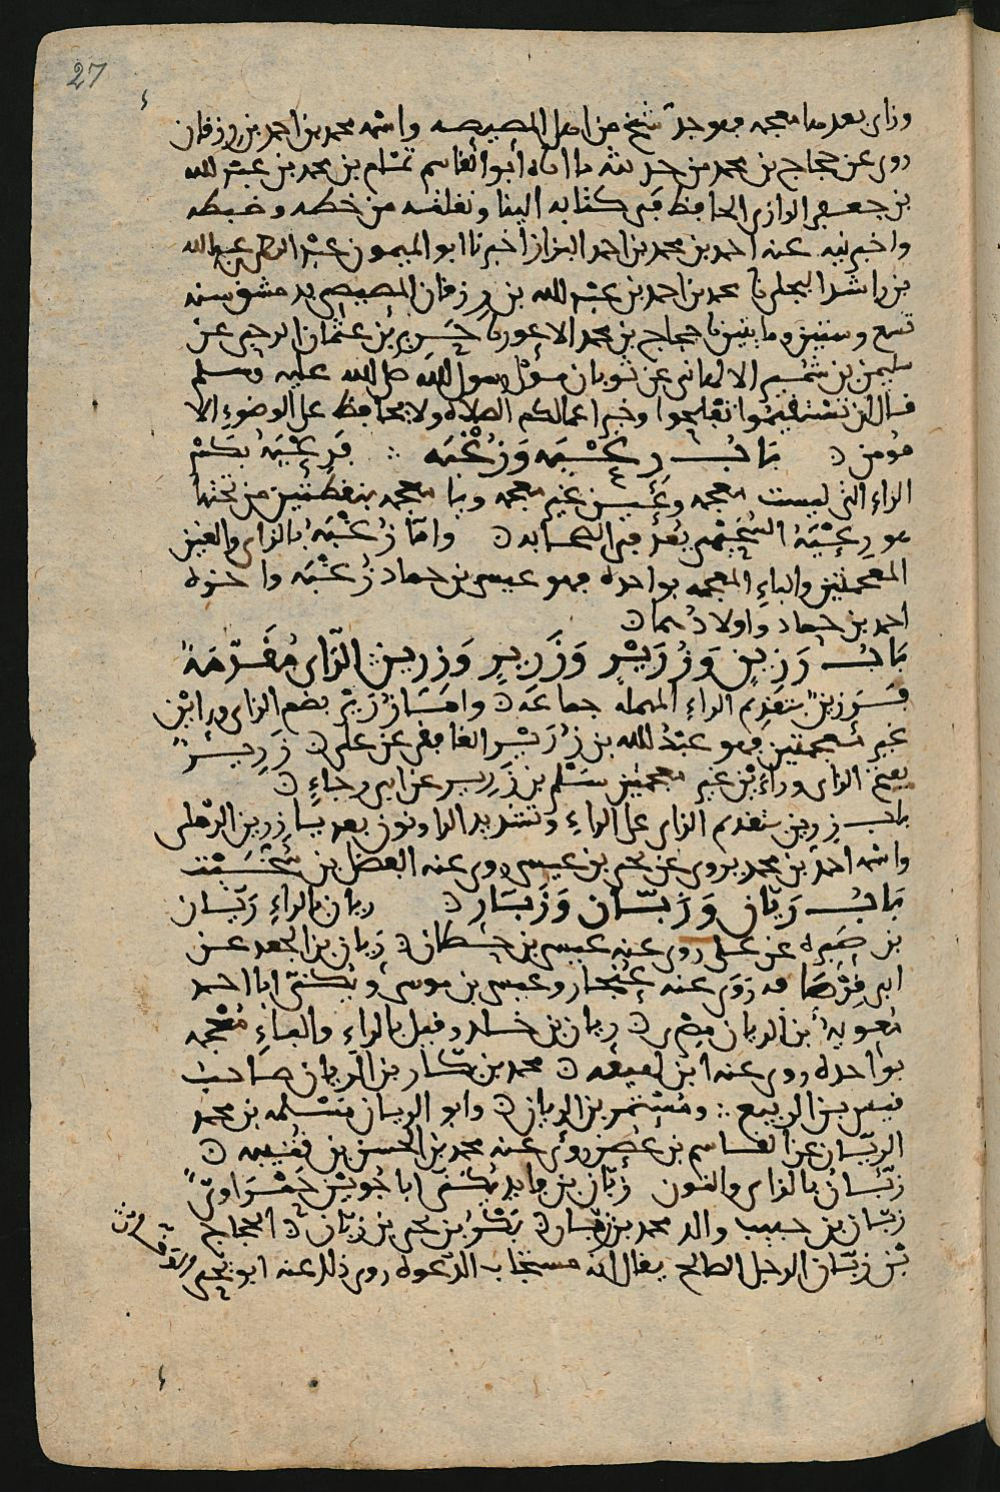 27
وزاى بعدها معجمه فهو جد شيخ من اهل المصيصه واسمه محمد بن احمد بن رزقان
روى عن حجاج بن محمد من حديثه ما اناه ابو القاسم تمام بن محمد بن عبد الله
بن جعفر الرازى الحافظ فى كتابه الينا ونقلته من خطه وضبطه
واخبرنيه عنه احمد بن محمد بن احمد البزاز اخبرنا ابو الميمون عبد الرحمن بن عبد الله
بن راشد البجلى نا محمد بن احمد بن عبد الله بن رزقان المصيصى بدمشق سنه
تسع وستين ومايتين نا حجاج بن محمد الاعور نا حريز بن عثمان الرحبى عن
سليمن بن سمير الالهانى عن ثوبان مولى رسول الله صلى الله عليه وسلم
قال ان تستقيموا تفلحوا وخير اعمالكم الصلاه ولا يحافظ على الوضوء الا
مومن باب رعية وزغبه فرعية بكسر
الراء التى ليست معجمه وعين غير معجمه ويا معجمه بنقطتين من تحتها
هو رعية السحيمى يعد فى الصحابه واما زغبة بالزاى والغين
المعجمتين والباء المعجمه بواحده فهو عيسى بن حماد زغبة واخوه
احمد بن حماد واولادهما
باب رزين وزرير وزرير وزرين الزاى مقدمة
فرزين بتقديم الراء المهمله جماعه واما زرير بضم الزاى وراين
غير معجمتين فهو عبد الله بن زرير الغافقى عن على زرير
بفتح الزاى وراءين غير معجمتين سلم بن زرير عن ابى رجاء
باب زرين بتقديم الزاى على الراء وتشديد الرا ونون بعد يا زرين الرملى
واسمه احمد بن محمد يروى عن يحيى بن عيسى روى عنه الفضل بن
باب ريان وربان وزبان ريان بالراء ريان
بن صبره عن على روى عنه عيسى بن حطان ريان بن الجعد عن
ابى قرصافه روى عنه غنجار وعيسى بن موسى ويكنى ابا احمد
معويه بن الريان مصرى ريان بن خالد وقيل بالراء والباء معجمه
بواحده روى عنه ابن لهيعه محمد بن بكار بن الريان صاحب
قيس بن الربيع ومستمر بن الريان وابو الريان مسلمه بن محمد
الريان عن القاسم بن غصن روى عنه محمد بن الحسن بن قتيبه
زبان بالزاى والنون زبان بن فايد يكنى ابا جوين حمراوى
زبان بن حبيب والد محمد بن زبان بكر بن يحيى بن زبان الحجاج
بن زبان الرجل الصالح يقال انه مستجاب الدعوه روى ذلك عنه ابو يحيى